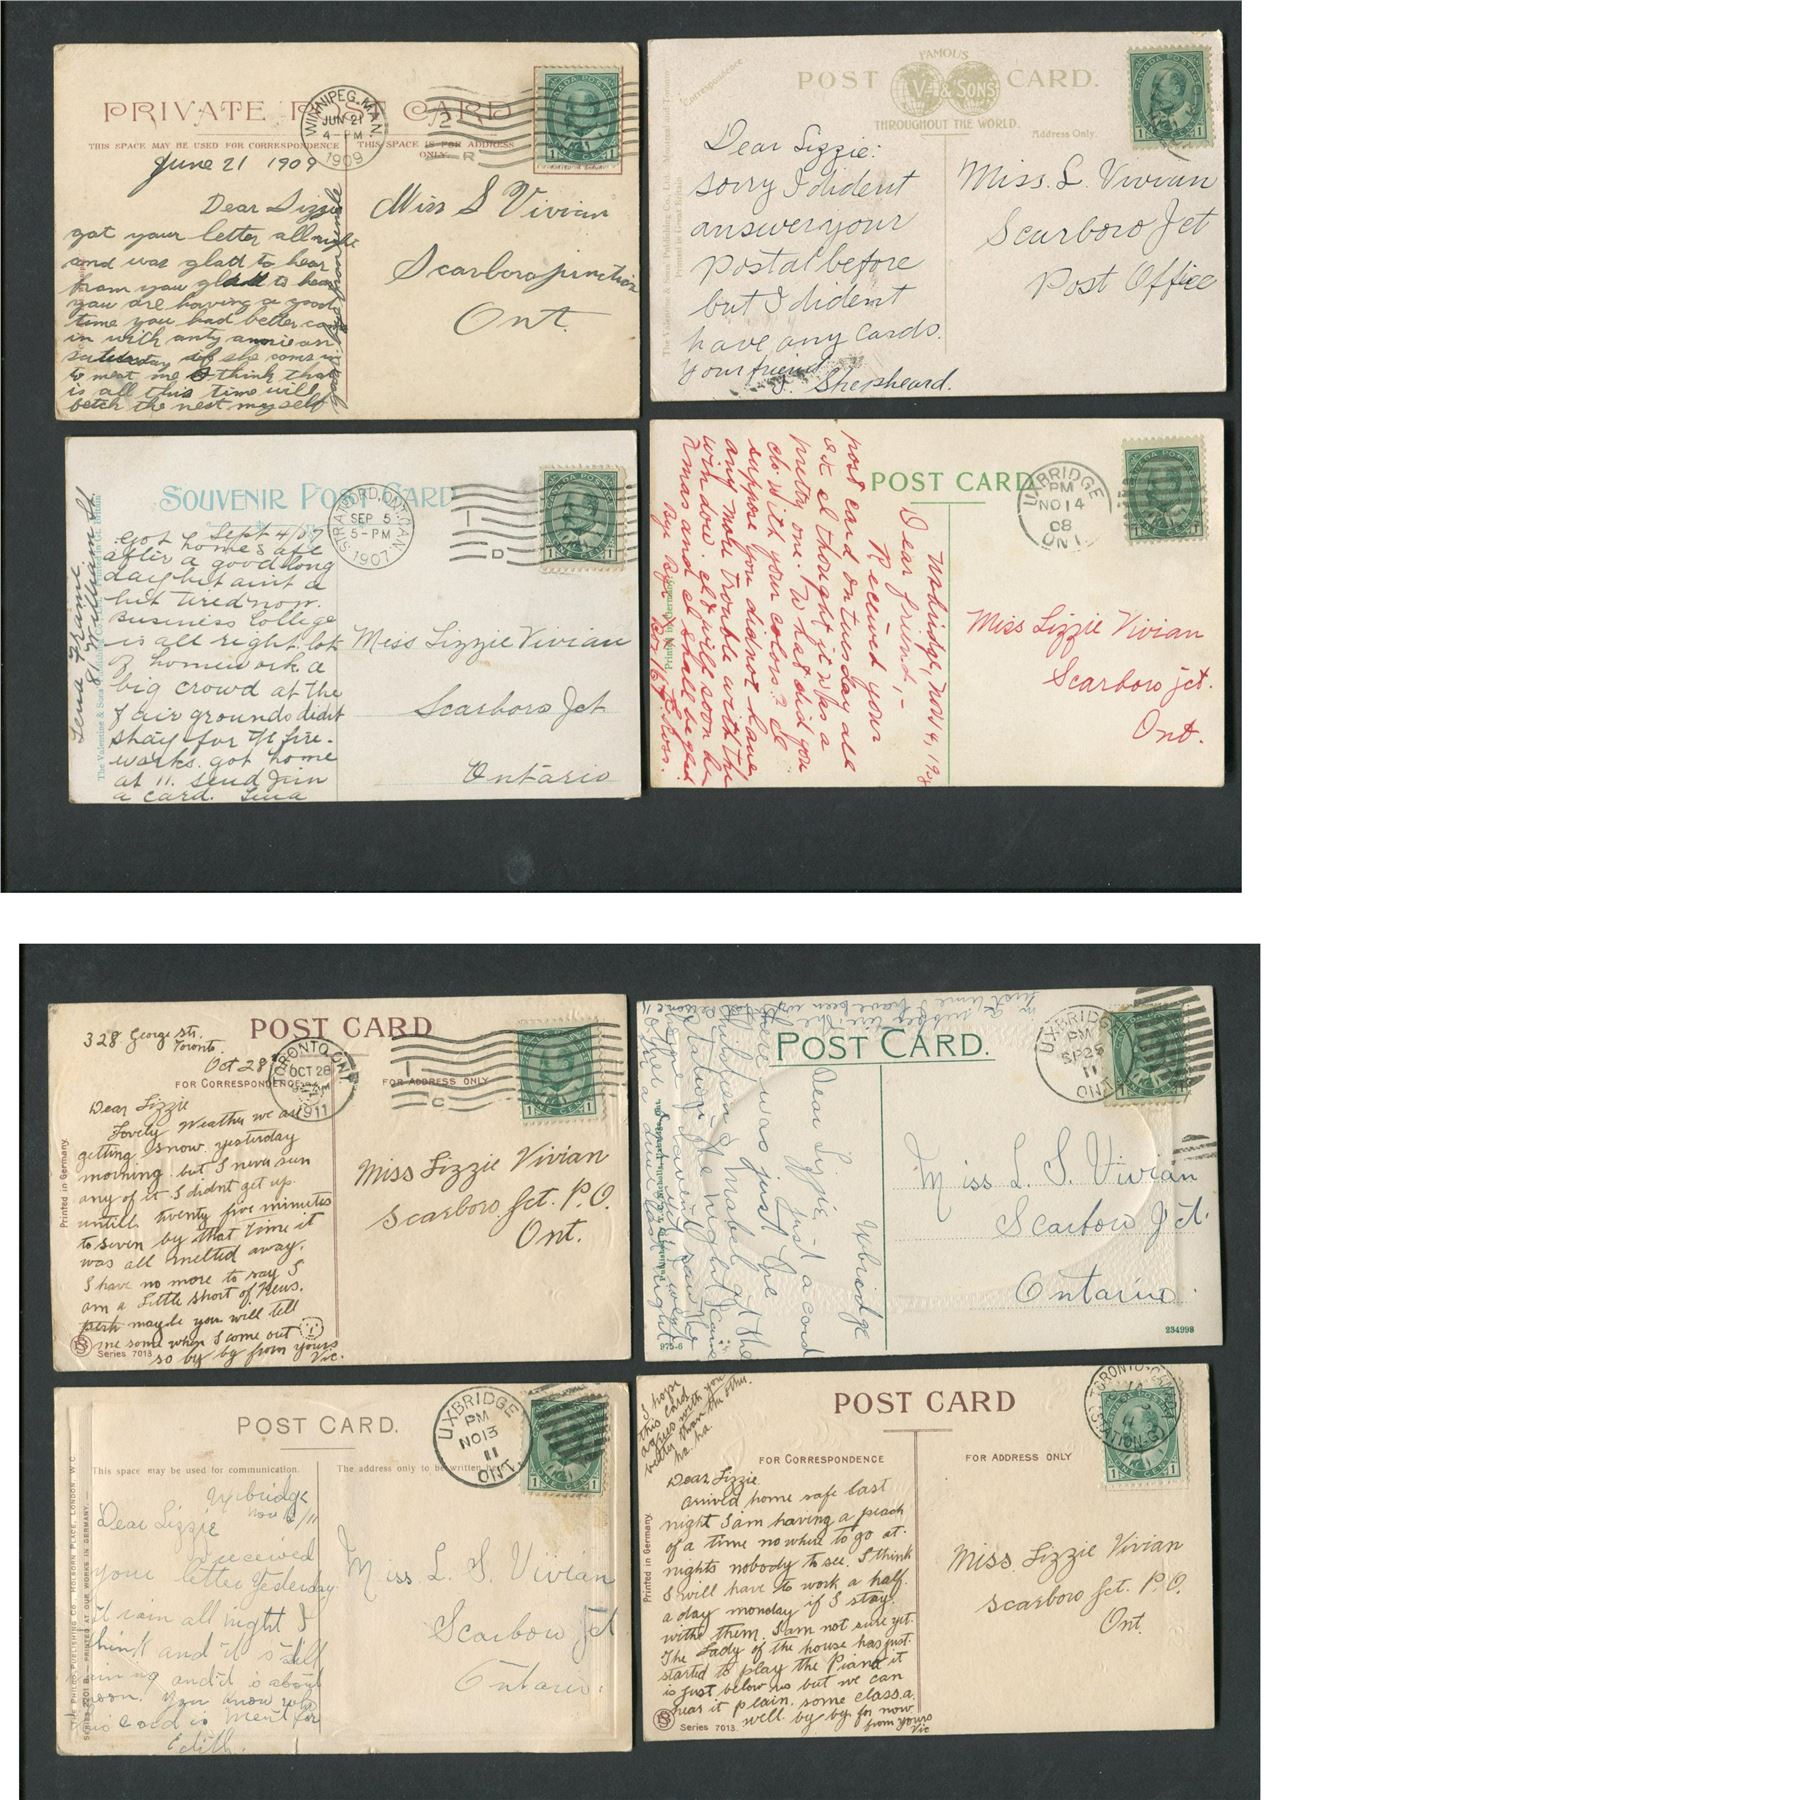 PRIVATE POST CARD
WINNIPEG, MAN.
JUN 21
4-PM
1909
2
R
CANADA POSTAGE
1 ONE CENT 1
THIS SPACE MAY BE USED FOR CORRESPONDENCE
THIS SPACE IS FOR ADDRESS
ONLY.
June 21 1909
Dear Lizzie
got your letter all right
and was glad to hear
from you glad to hear
you are having a good
time you had better come
in with anty annie on
saturday if she coms in
to meat me I think that
is all this time will
betch the next my self
Miss S Vivian
Scarboro junction
Ont.
FAMOUS
POST CARD.
V & SONS
THROUGHOUT THE WORLD.
Correspondence.
Address Only.
The Valentine & Sons Publishing Co., Ltd. Montreal and Toronto
Printed in Great Britain
CANADA POSTAGE
Dear Lizzie:
sorry I dident
answer your
postal before
but I dident
have any cards.
Your friend
J. Shepheard.
Miss. L. Vivian
Scarboro Jct
Post Office
SOUVENIR POST CARD
STRATFORD, ONT. CAN.
SEP 5
5-PM
1907
1
D
CANADA POSTAGE
1 ONE CENT 1
Sept 4/07
Got home safe
after a good long
day but aint a
bit tired now.
Business College
is all right. lots
of homework. a
big crowd at the
fair grounds didnt
stay for the fire-
works. got home
at 11. send Jim
a card. Lena
Lena Frame
81 William St
The Valentine & Sons
Miss Lizzie Vivian
Scarboro Jct
Ontario
POST CARD
UXBRIDGE
PM
NO 14
08
ONT.
CANADA POSTAGE
Printed in Germany
Uxbridge, Nov 14, 1908
Dear friend,-
Received your
post card on tuesday all
right I thought it was a
pretty one. What did you
do with your colors? I
suppose you didnot have
any more trouble with the
window. it will soon be
Xmas and I shall be glad
Bye Bye
Miss Lizzie Vivian
Scarboro jct.
Ont.
POST CARD
328 George str.
Toronto
Oct 28
TORONTO, ONT
OCT 28
1911
1
C
CANADA POSTAGE
1 ONE CENT 1
FOR CORRESPONDENCE
FOR ADDRESS ONLY
Dear Lizzie
Lovely Weather we are
getting snow yesterday
morning but I never seen
any of it I didnt get up
untill twenty five minutes
to seven by that time it
was all melted away.
I have no more to say I
am a little short of News.
maybe you will tell
me some when I come out
so by by from yours
Vic.
Printed in Germany
Series 7013
Miss Lizzie Vivian
Scarboro Jct. P.O.
Ont.
POST CARD.
UXBRIDGE
PM
SP 25
11
ONT
Uxbridge
Dear Lizzie,
Just a card
there was just the
children & Mabel at the
station the night I came
home
Miss L. S. Vivian
Scarboro Jct.
Ontario.
975-6
234998
POST CARD.
UXBRIDGE
PM
NO 13
11
ONT.
This space may be used for communication.
The address only to be written here
THE PHILCO PUBLISHING CO., HOLBORN PLACE, LONDON W.C.
SERIES 2201 B — PRINTED AT OUR WORKS IN GERMANY.
Uxbridge
Nov /11
Dear Lizzie
I received
your letter Yesterday.
it rain all night I
think and it still
raining and it is about
noon. You know who
this card is ment for
Edith.
Miss L. S. Vivian
Scarboro Jct
Ontario.
I hope
this card
agrees with you
better than the other.
ha. ha.
POST CARD
TORONTO, CANADA
(STATION-G)
FOR CORRESPONDENCE
FOR ADDRESS ONLY
Dear Lizzie
arrived home safe last
night I am having a peach
of a time no where to go at
nights nobody to see. I think
I will have to work a half
a day monday if I stay
withe them. I am not sure yet.
The Lady of the house has just
started to play the Piano it
is just below us but we can
hear it plain. some class. a.
well. by by. for now
from yours
Vic
Printed in Germany
Series 7013.
Miss Lizzie Vivian
Scarboro Jct. P.O.
Ont.